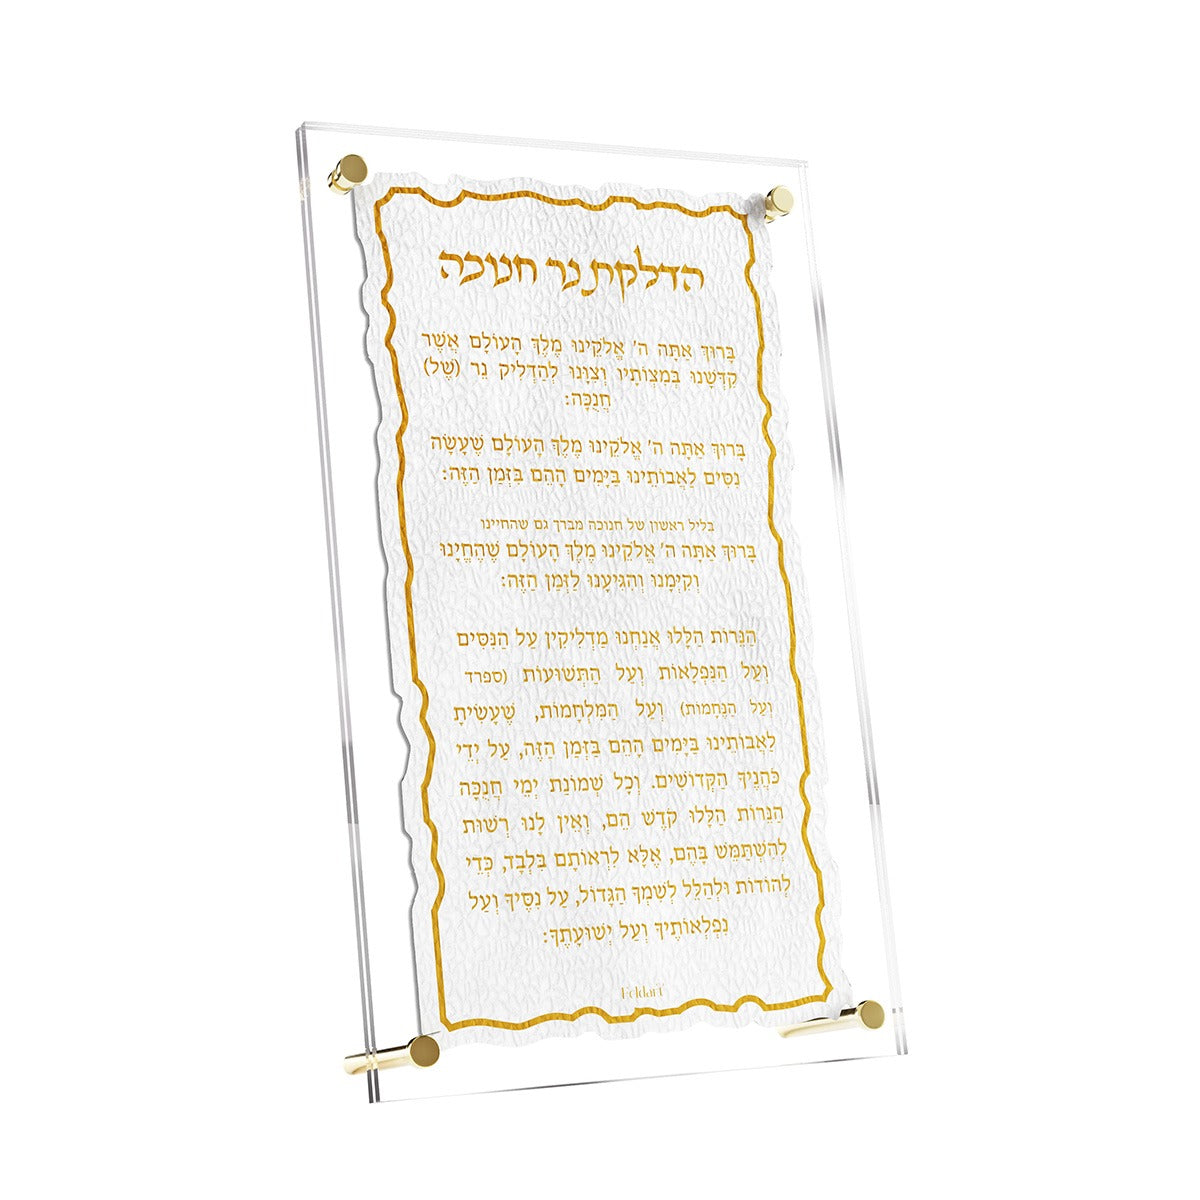 הדלקת נר חנוכה
בָּרוּךְ אַתָּה ה' אֱלֹקֵינוּ מֶלֶךְ הָעוֹלָם אֲשֶׁר
קִדְּשָׁנוּ בְּמִצְוֹתָיו וְצִוָּנוּ לְהַדְלִיק נֵר (שֶׁל)
חֲנֻכָּה:
בָּרוּךְ אַתָּה ה' אֱלֹקֵינוּ מֶלֶךְ הָעוֹלָם שֶׁעָשָׂה
נִסִּים לַאֲבוֹתֵינוּ בַּיָּמִים הָהֵם בִּזְמַן הַזֶּה:
בליל ראשון של חנוכה מברך גם שהחיינו
בָּרוּךְ אַתָּה ה' אֱלֹקֵינוּ מֶלֶךְ הָעוֹלָם שֶׁהֶחֱיָנוּ
וְקִיְּמָנוּ וְהִגִּיעָנוּ לַזְּמַן הַזֶּה:
הַנֵּרוֹת הַלָּלוּ אֲנַחְנוּ מַדְלִיקִין עַל הַנִּסִּים
וְעַל הַנִּפְלָאוֹת וְעַל הַתְּשׁוּעוֹת (ספרד
וְעַל הַנֶּחָמוֹת) וְעַל הַמִּלְחָמוֹת, שֶׁעָשִׂיתָ
לַאֲבוֹתֵינוּ בַּיָּמִים הָהֵם בַּזְּמַן הַזֶּה, עַל יְדֵי
כֹּהֲנֶיךָ הַקְּדוֹשִׁים. וְכָל שְׁמוֹנַת יְמֵי חֲנֻכָּה
הַנֵּרוֹת הַלָּלוּ קֹדֶשׁ הֵם, וְאֵין לָנוּ רְשׁוּת
לְהִשְׁתַּמֵּשׁ בָּהֶם, אֶלָּא לִרְאוֹתָם בִּלְבָד, כְּדֵי
לְהוֹדוֹת וּלְהַלֵּל לְשִׁמְךָ הַגָּדוֹל, עַל נִסֶּיךָ וְעַל
נִפְלְאוֹתֶיךָ וְעַל יְשׁוּעָתֶךָ:
Feldart